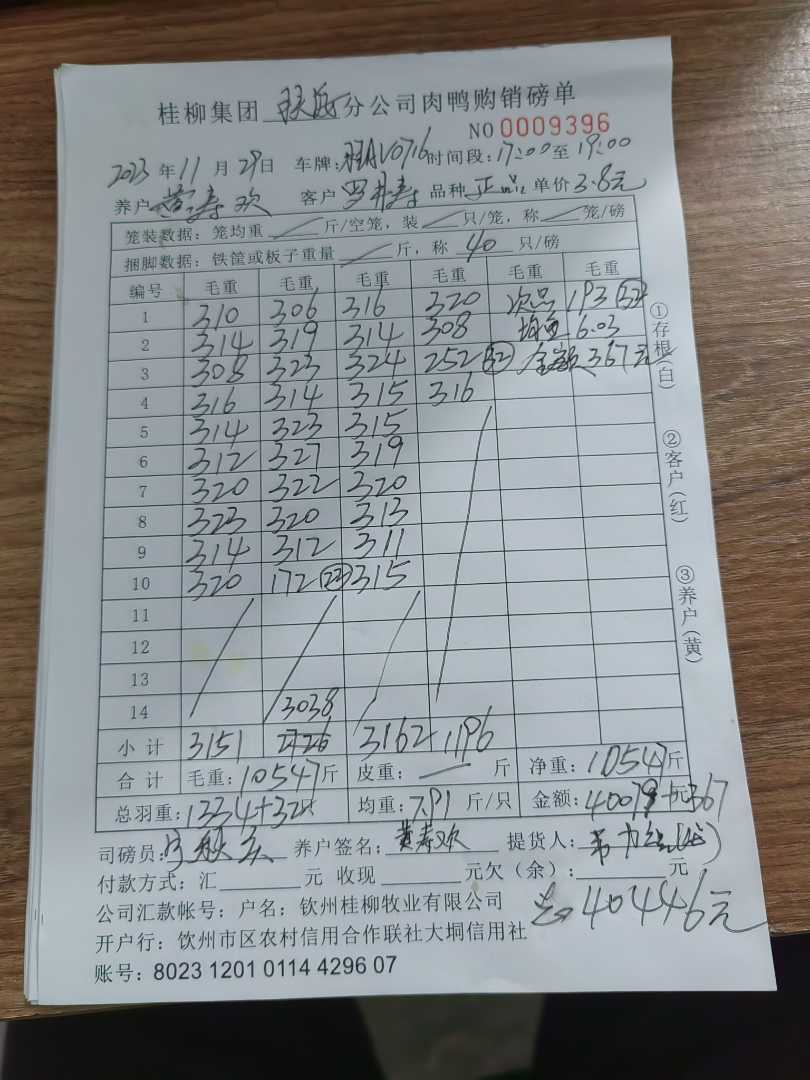 桂柳集团 钦府 分公司肉鸭购销磅单
NO 0009396
2023 年 11 月 29 日 车牌: AV0716 时间段: 17:00 至 19:00
养户 黄寿欢 客户 品种 正品 单价 3.8元
笼装数据: 笼均重 / 斤/空笼, 装 / 只/笼, 称 / 笼/磅
捆脚数据: 铁筐或板子重量 / 斤, 称 40 只/磅
编号 毛重 毛重 毛重 毛重 毛重 毛重
1 310 306 316 320 次品 193 32
2 314 319 314 308 均重 6.03
3 308 323 324 252 32 金额 367元
4 316 314 315 316
5 314 323 315
6 312 327 319
7 320 322 320
8 323 320 313
9 314 312 311
10 320 172 22 315
11
12
13
14 3038
小计 3151 3162 1196
合计 毛重: 10547 斤 皮重: 斤 净重: 10547 斤
总羽重: 1334+32只 均重: 7.91 斤/只 金额: 40079 元+367
司磅员: 养户签名: 黄寿欢 提货人:
付款方式: 汇 元 收现 元欠(余): 元
公司汇款帐号: 户名: 钦州桂柳牧业有限公司
40446元
开户行: 钦州市区农村信用合作联社大垌信用社
账号: 8023 1201 0114 4296 07
①存根(白)
②客户(红)
③养户(黄)